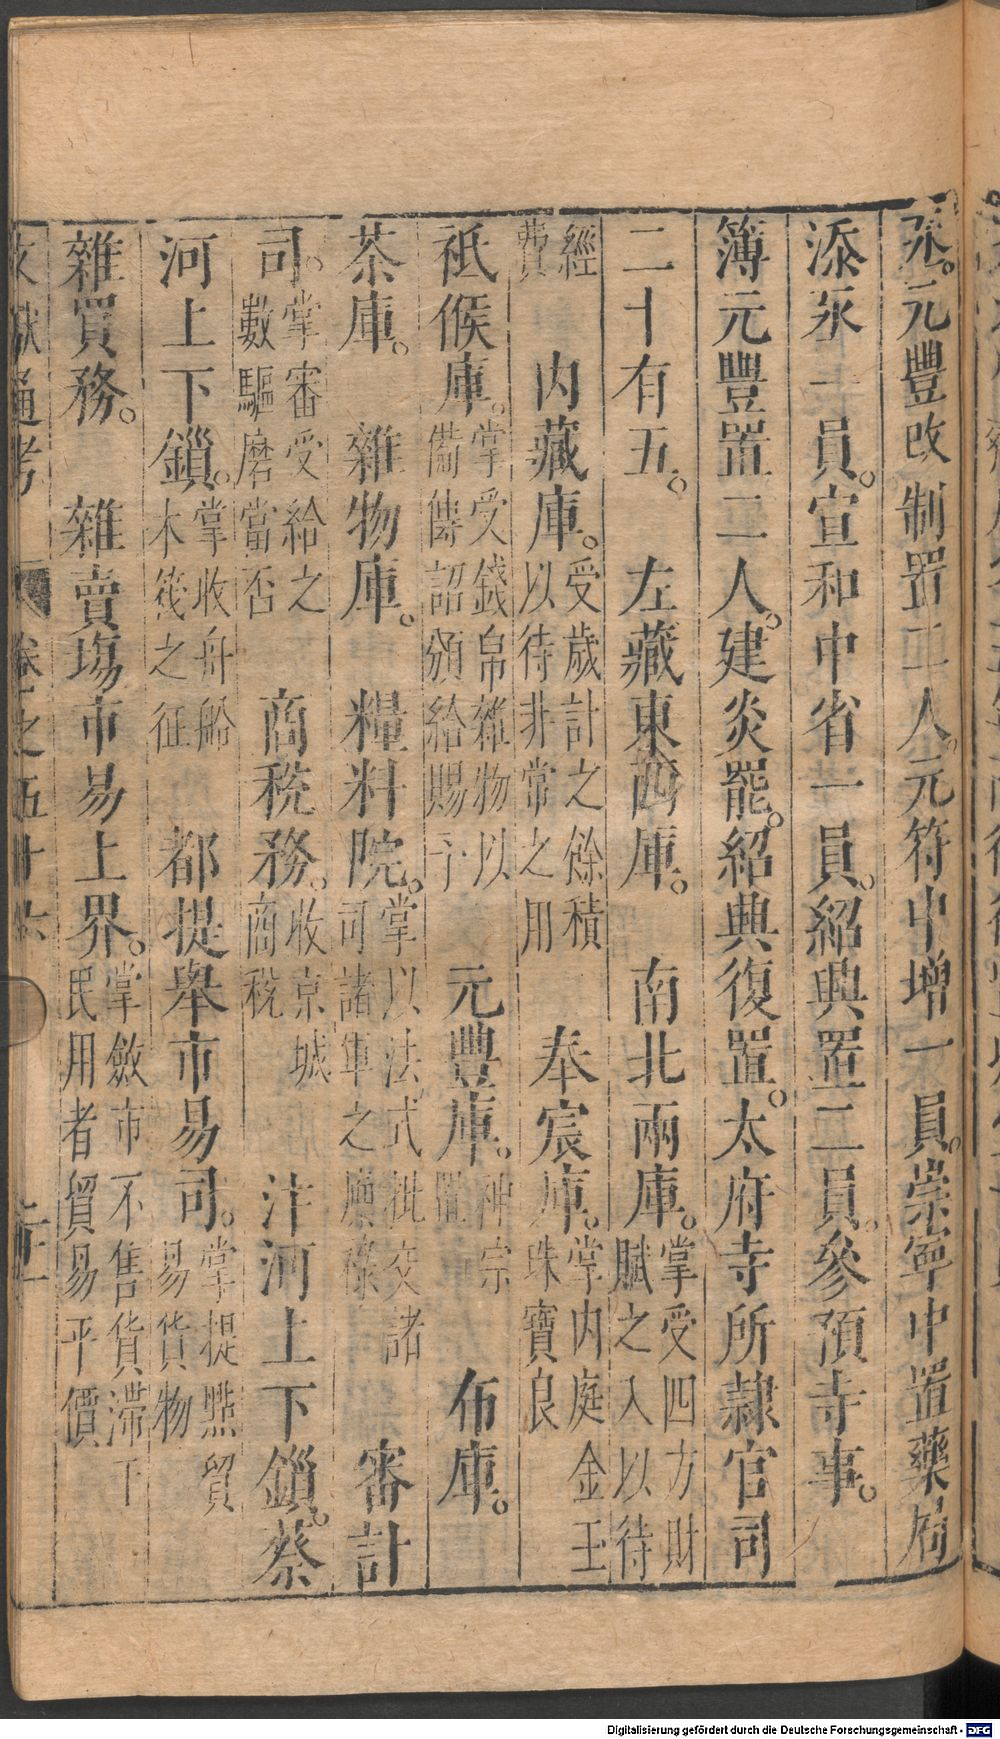 丞。元豐改制置二人。元符中增一員。崇寧中置藥局
添丞一員。宣和中省一員。紹興置二員。參預寺事。
簿元豐置二人。建炎罷。紹興復置。太府寺所隷官司
二十有五。 左藏東西庫。 南北兩庫。掌受四方財賦之入以待
經費 内藏庫。受歲計之餘積以待非常之用 奉宸庫。掌内庭金玉珠寶良
祗候庫。掌受錢帛雜物以備傳詔頒給賜予 元豐庫。神宗置 布庫。
茶庫。 雜物庫。 糧料院。掌以法式批交諸司諸軍之廪祿 審計
司。掌審受給之數驅磨當否 商稅務。收京城商稅 汴河上下鎖。蔡
河上下鎖。掌收舟船木筏之征 都提舉市易司。掌提㸃貿易貨物
雜買務。 雜賣塲市易上界。掌斂市不售貨滯于民用者貿易平價
文獻通考 卷之五十六
Digitalisierung gefördert durch die Deutsche Forschungsgemeinschaft - DFG